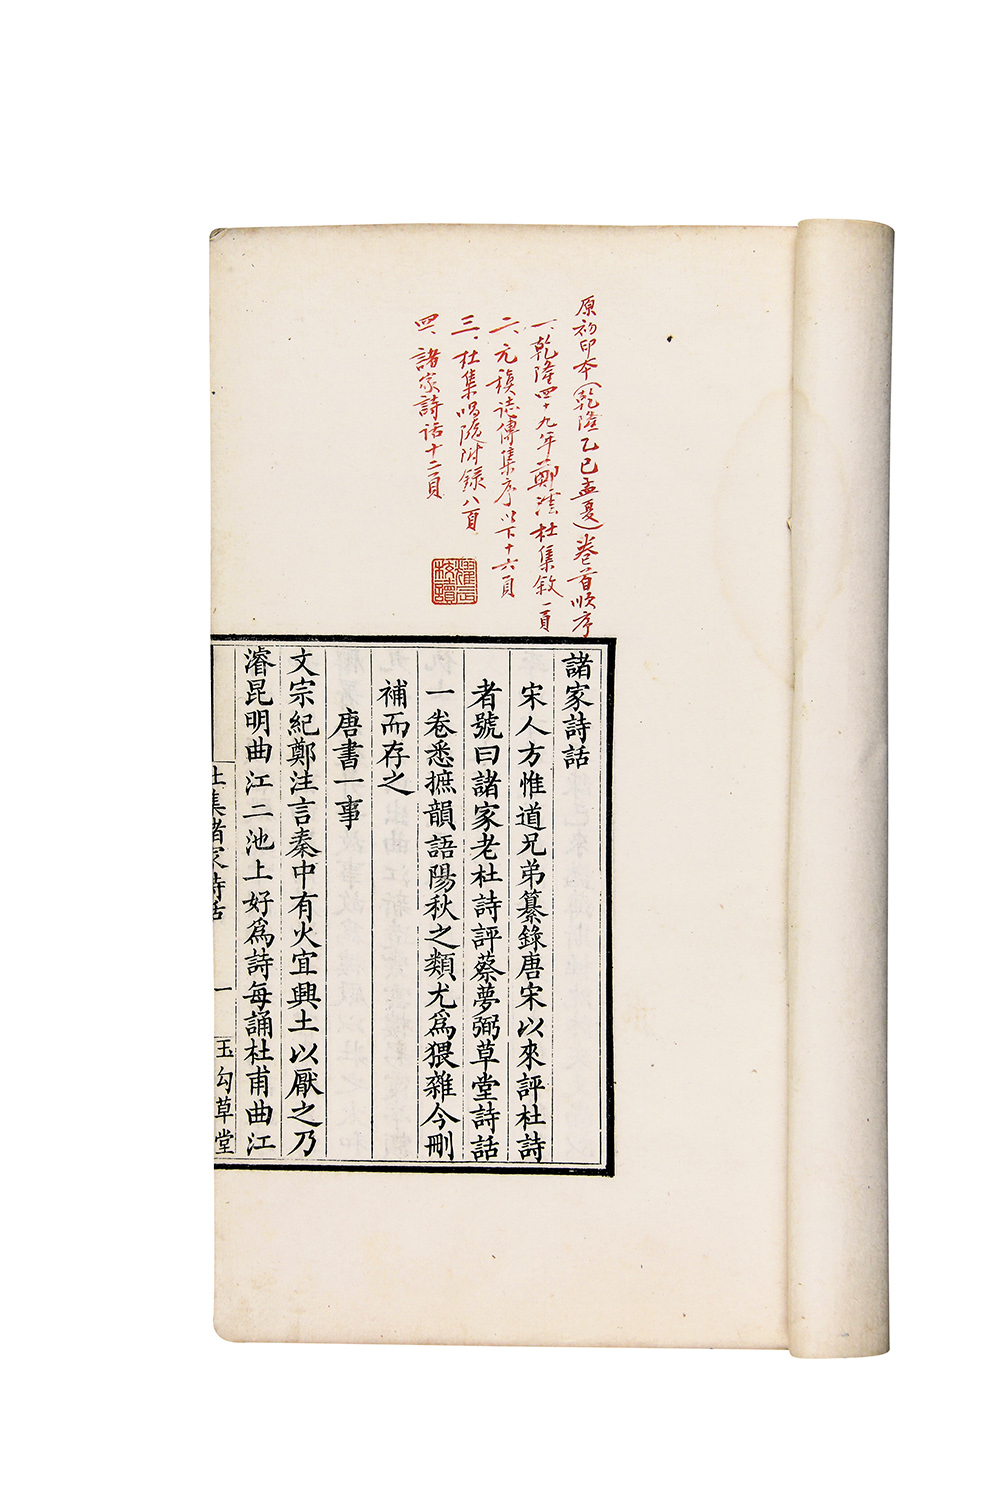 原初印本（乾隆乙巳孟夏）卷首順序
一、乾隆四十九年鄭澐杜集敘一頁
二、元稹誌傳集序以下十六頁
三、杜集唱酬附錄八頁
四、諸家詩話十二頁
諸家詩話
宋人方惟道兄弟纂錄唐宋以來評杜詩
者號曰諸家老杜詩評蔡夢弼草堂詩話
一卷悉摭韻語陽秋之類尤爲猥雜今刪
補而存之
唐書一事
文宗紀鄭注言秦中有火宜興土以厭之乃
濬昆明曲江二池上好爲詩每誦杜甫曲江
杜集諸家詩話
一
玉勾草堂